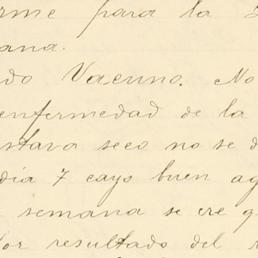 rme para la
ana.
do Vacuno. No
enfermedad de la
stava seco no se d
dia 7 cayo buen ag
semana se cre q
or resultado del